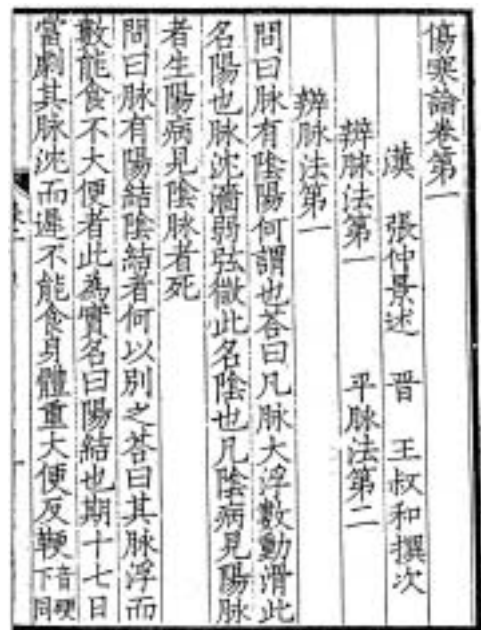 傷寒論卷第一
漢　張仲景述　晋　王叔和撰次
辨脉法第一　平脉法第二
辨脉法第一
問曰脉有陰陽何謂也荅曰凡脉大浮數動滑此
名陽也脉沈濇弱弦微此名陰也凡陰病見陽脉
者生陽病見陰脉者死
問曰脉有陽結陰結者何以別之荅曰其脉浮而
數能食不大便者此為實名曰陽結也期十七日
當劇其脉沈而遲不能食身體重大便反鞕音硬下同